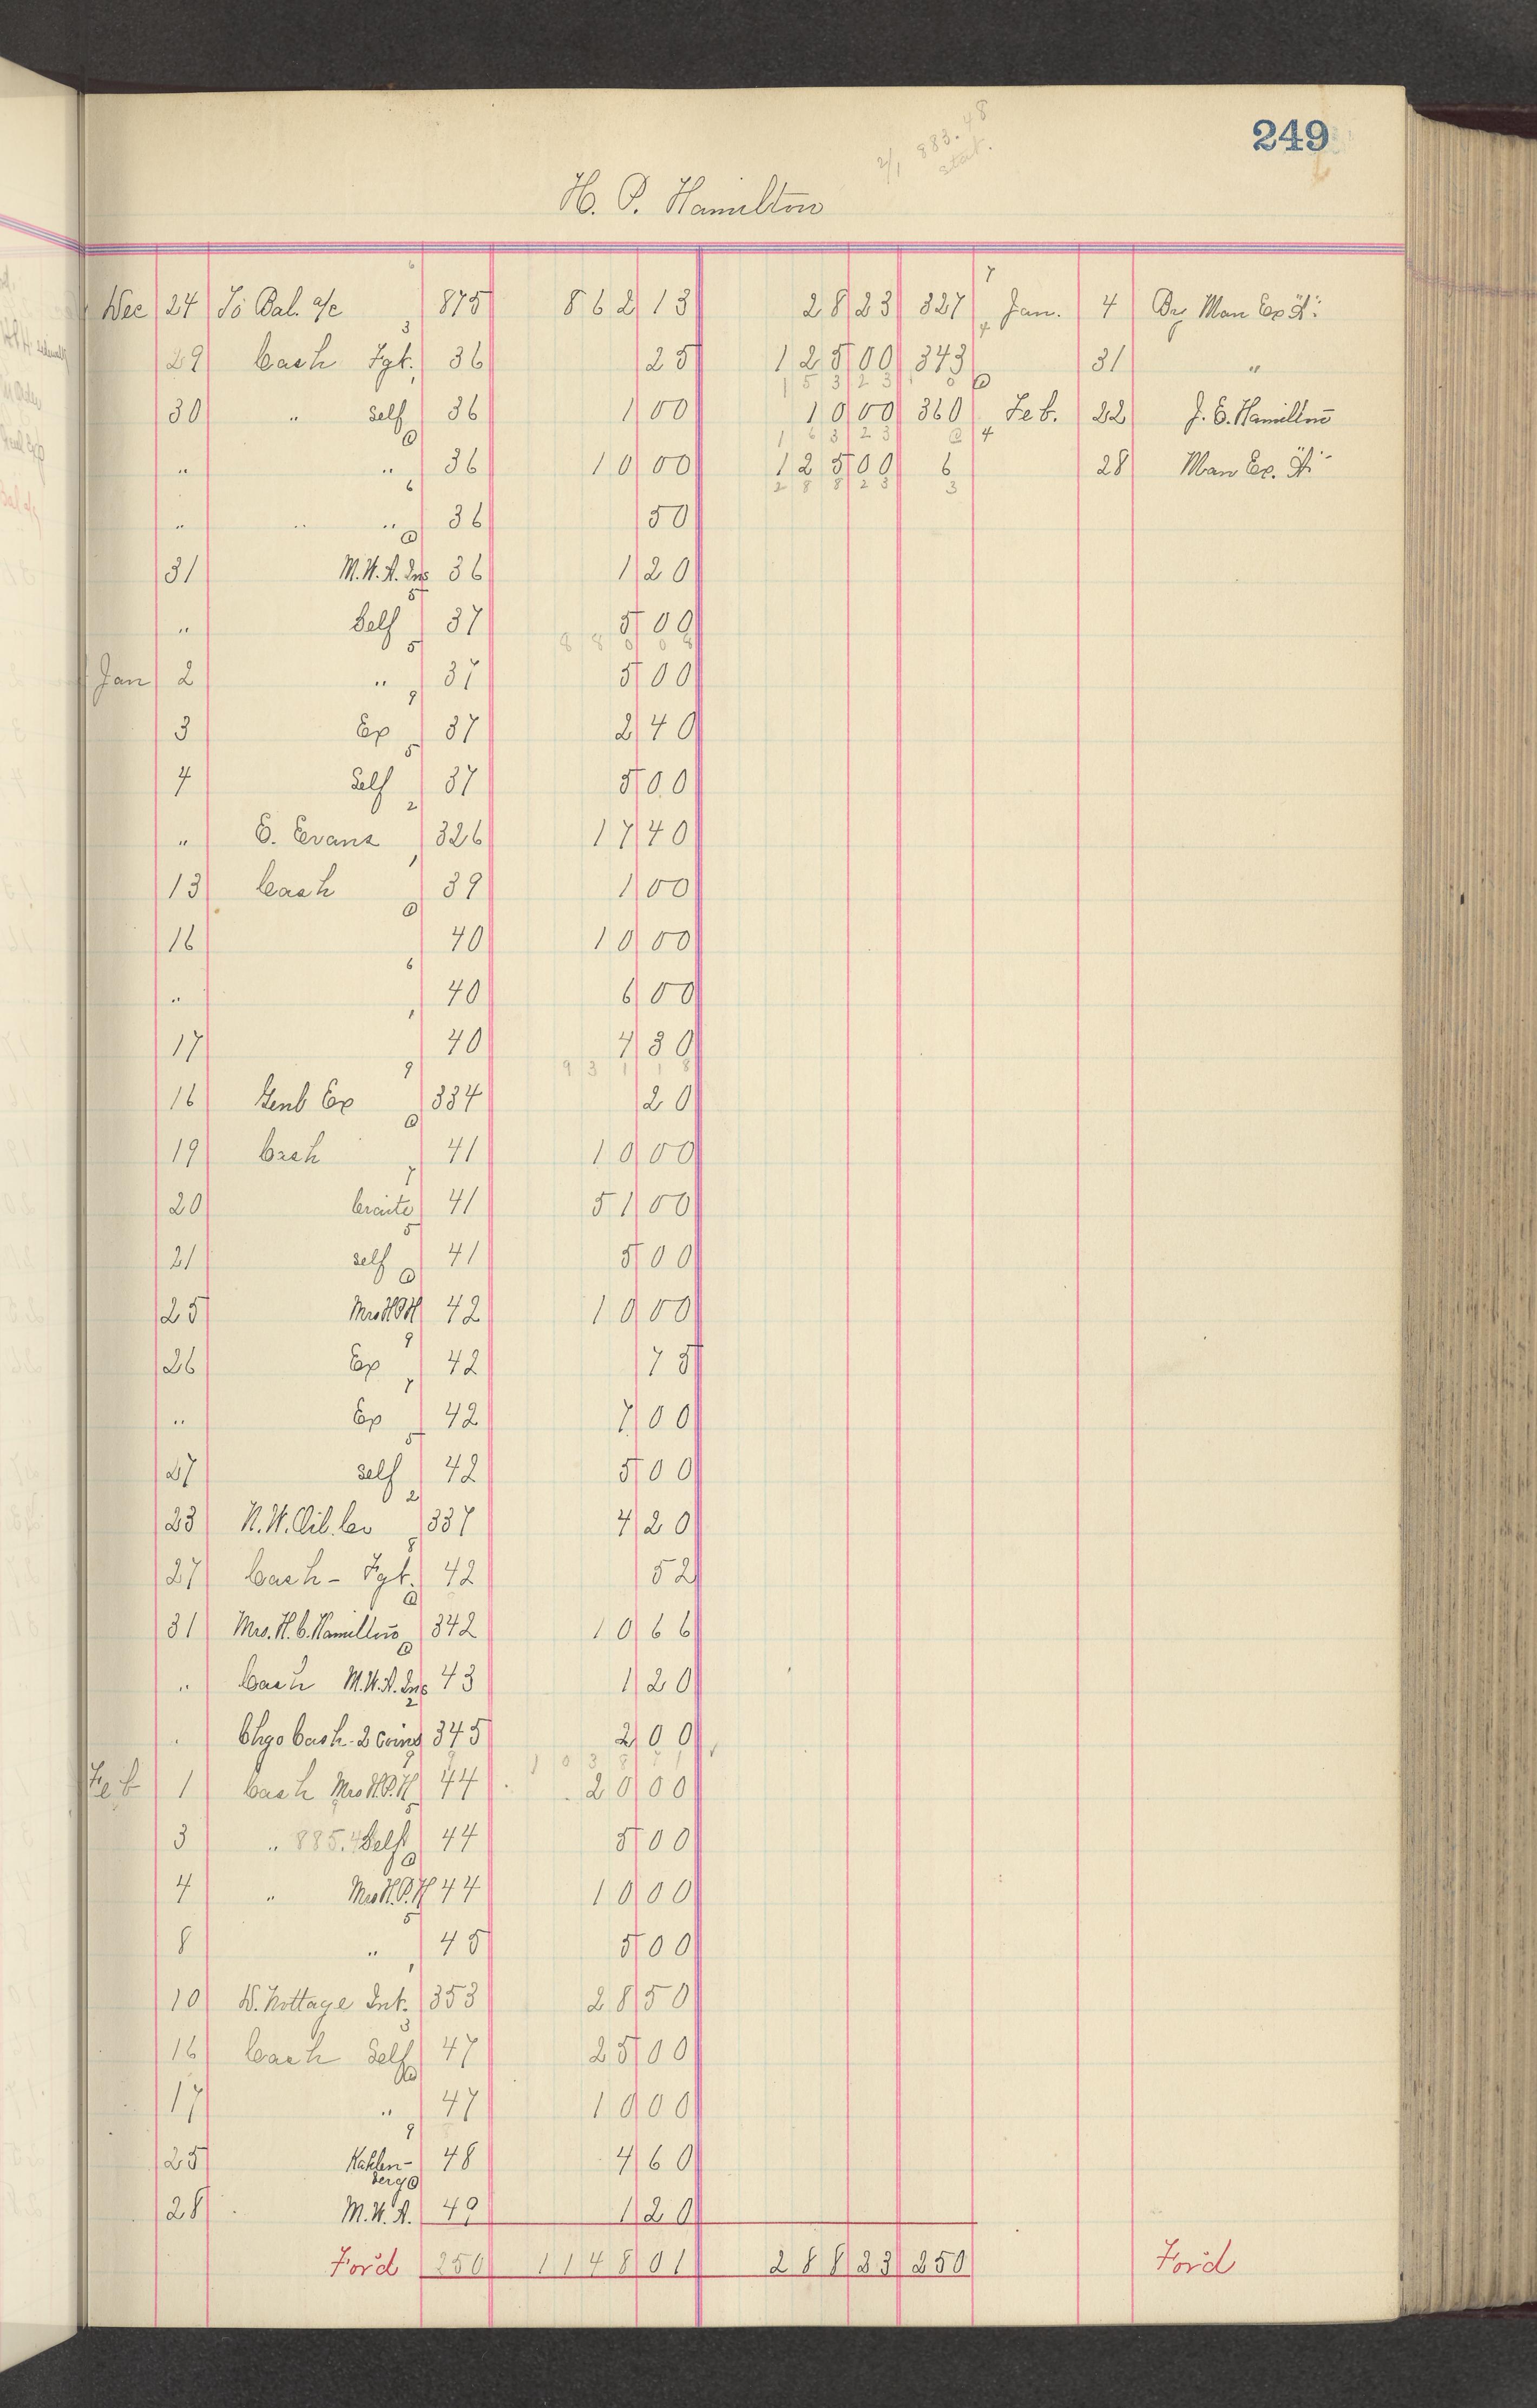 249
2/1 883.48
stat.
H. P. Hamilton
Dec 24 To Bal. a/c 875 862 13 28 23 327 Jan. 4 By Man Ex
29 Cash Fgt. 36 25 125 00 343 31 "
153 23
30 " self 36 1 00 10 00 360 Feb. 22 J. E. Hamilton
163 23
" " 36 10 00 125 00 6 28 Man Ex.
288 23
" " " 36 50
31 M.W.A. Ins 36 1 20
" Self 37 5 00
Jan 2 " 37 5 00
3 Ex 37 2 40
4 Self 37 5 00
" E. Evans 326 17 40
13 Cash 39 1 00
16 40 10 00
" 40 6 00
17 40 4 30
931 18
16 Genl Ex 334 20
19 Cash 41 10 00
20 41 51 00
21 self 41 5 00
25 Mrs HPH 42 10 00
26 Ex 42 75
" Ex 42 7 00
27 self 42 5 00
23 N.W. Oil Co 337 4 20
27 Cash - Fgt. 42 52
31 Mrs. H. C. Hamilton 342 10 66
" Cash M.W.A. Ins 43 1 20
Chgo Cash. 345 2 00
1038 71
Feb 1 Cash Mrs H.P.H 44 20 00
3 " 885.4 Self 44 5 00
4 " Mrs H.P.H 44 10 00
8 " 45 5 00
10 D. Kottage Int. 353 28 50
16 Cash Self 47 25 00
17 " 47 10 00
25 Kahlen- 48 4 60
berg
28 M.W.A. 49 1 20
For'd 250 1148 01 288 23 250 For'd